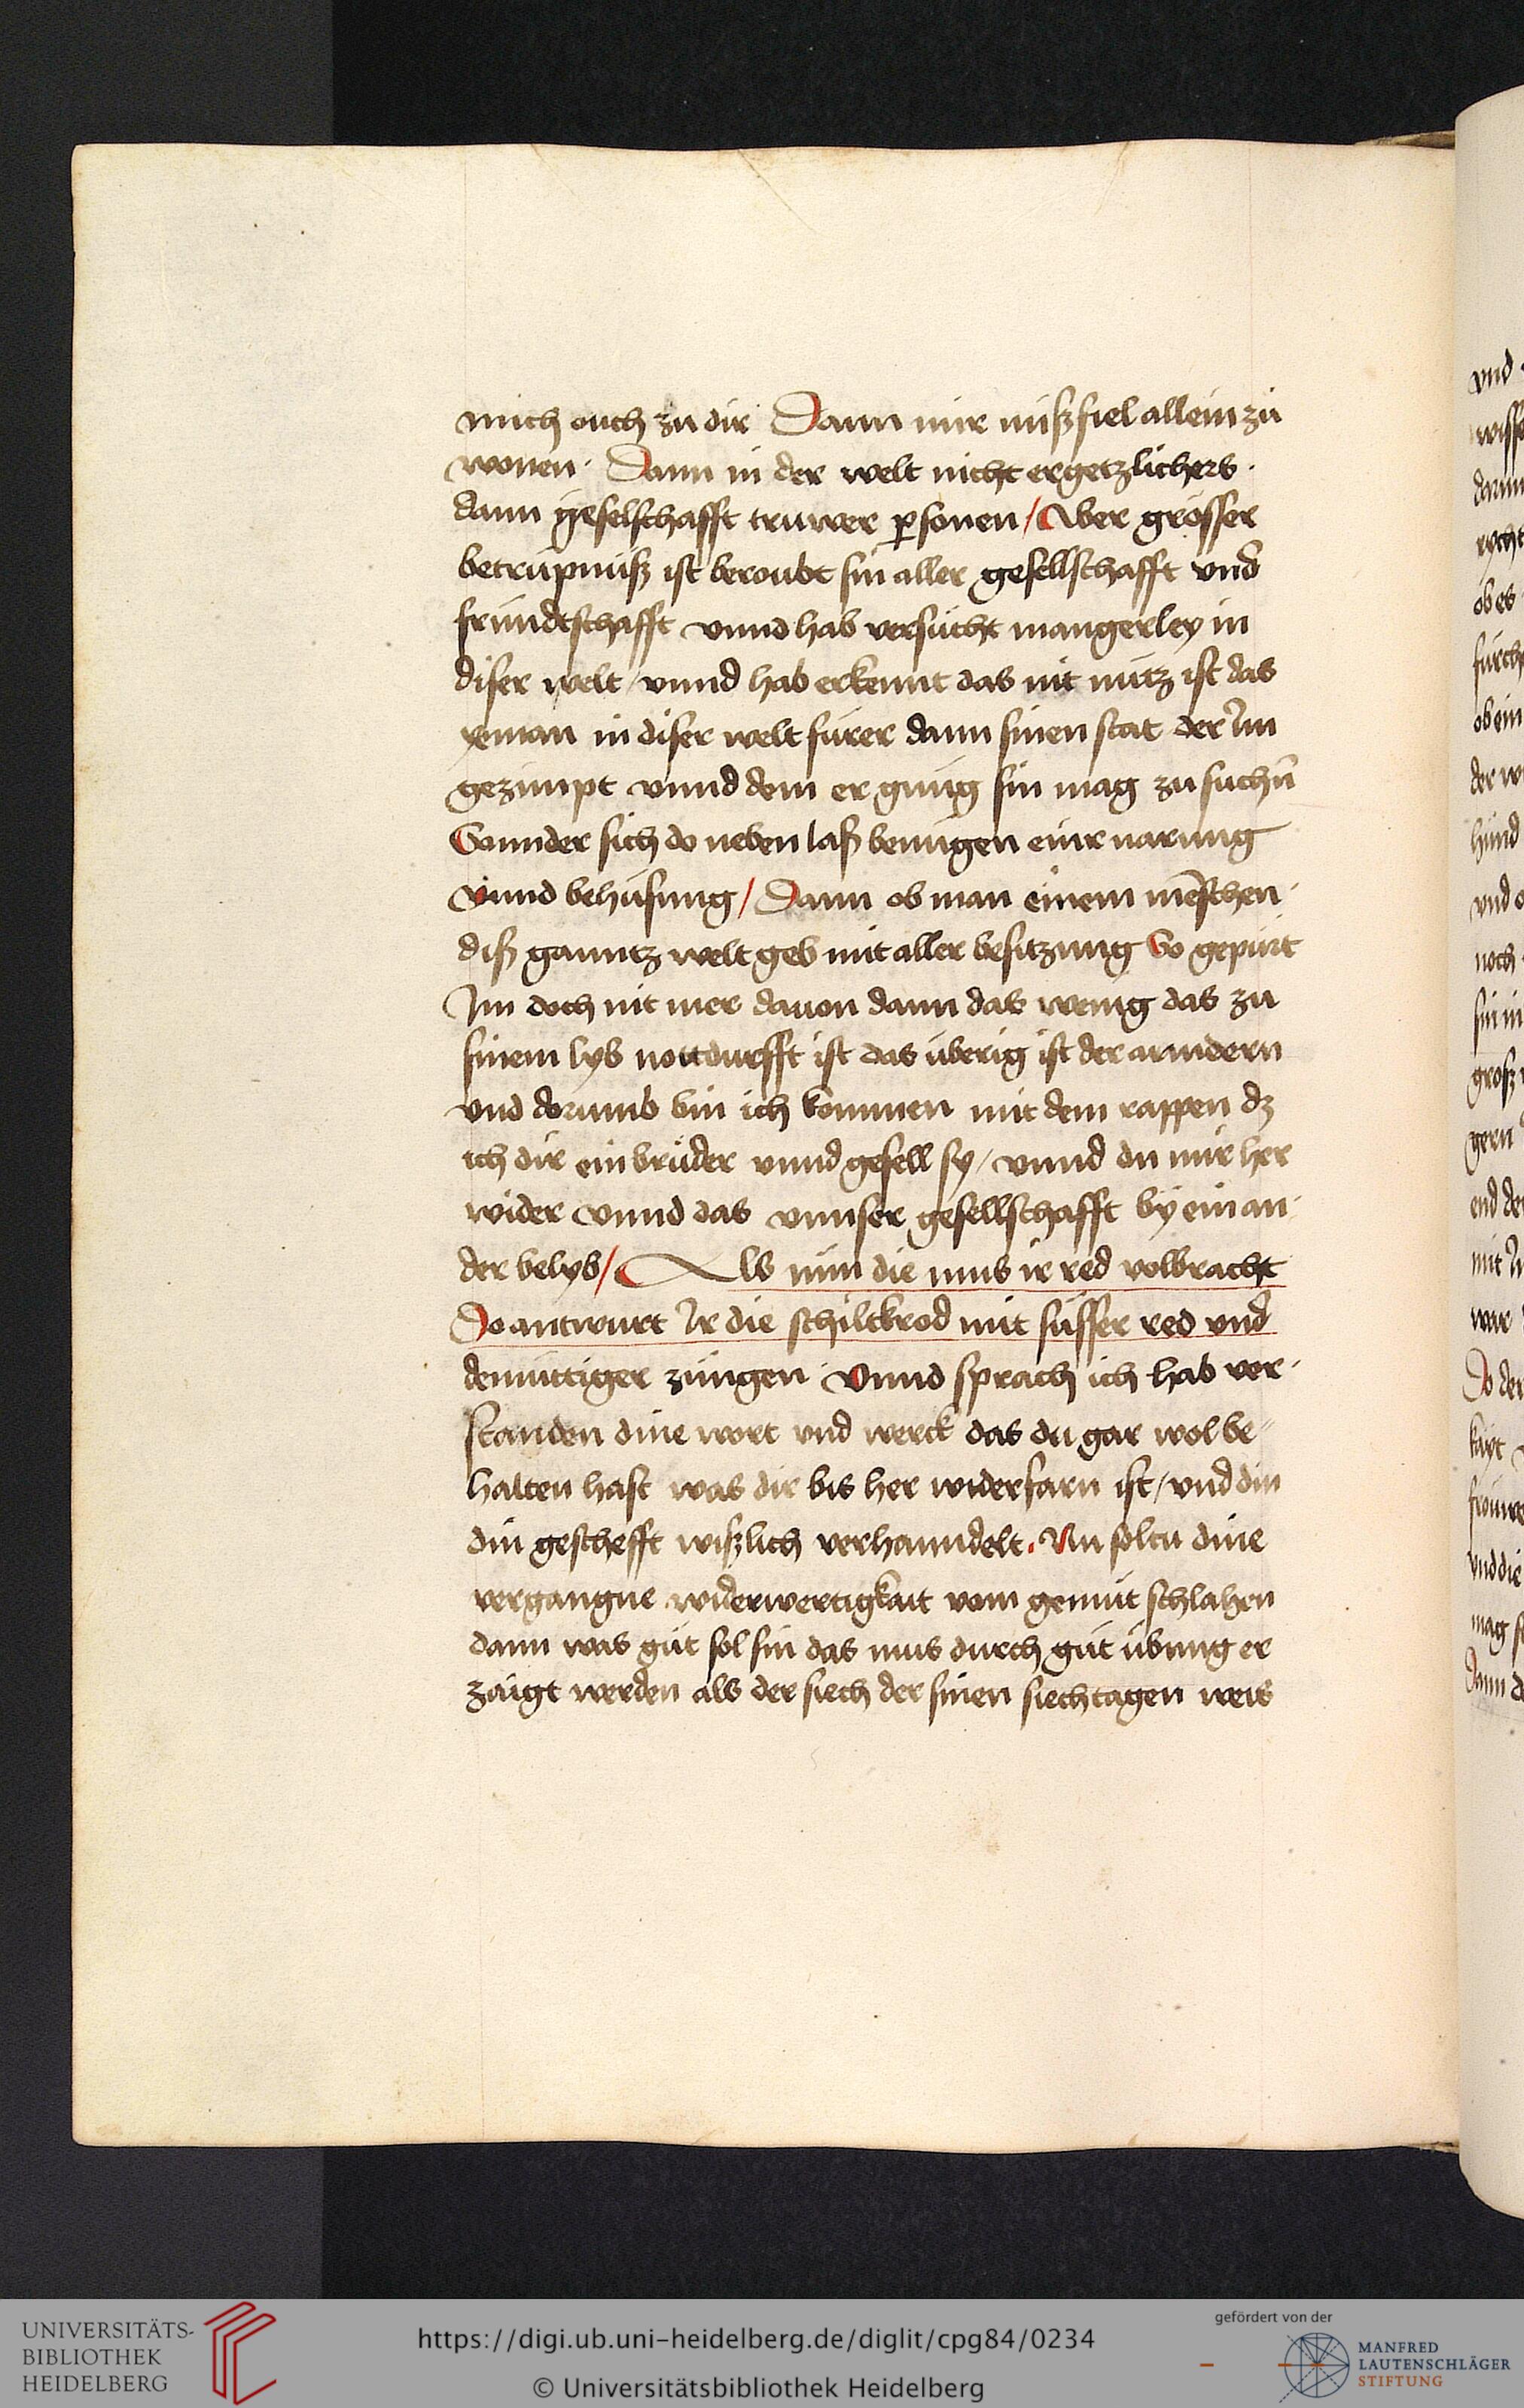 mich ouch zu dir Dann mir mißfiel allein zu
wonen · Dann in der welt nicht ergetzlichers ·
dann geselschafft truwer ꝑsonen / Aber grösser
betrüpnüß ist beroubt sin aller gesellschafft und
fründtschafft vnnd hab versücht mangerley in
diser welt / vnnd hab erkennt das nit nütz ist das
yeman in diser welt fürer dann sinen stat der Im
gezimpt vnnd dem er gnüg sin mag zu suchñ
Sonnder sich do neben laß benügen einr narung
Vnnd behüsung / Dann ob man einem mēschen ·
diß ganntz welt geb mit aller besitzung So gepürt
Im doch nit mer dauon dann das wenig das zu
sinem lyb nottdurfft ist das überig ist der anndern
vnd dorumb bin ich kommen mit dem rappen dz
ich dir ein brüder vnnd gesell sy / vnnd du mir her
wider vnnd das vnnser gesellschafft by ein an ·
der belyb / Als nün die mus ir red volbracht
Do antwurt Ir die schiltkrod mit süsser red vnd
demüttiger züngen · Vnnd sprach ich hab ver ·
standen dine wort vnd werck das du gar wol be "
halten hast was dir bis her widerfarn ist / vnd din
din geschefft wißlich verhanndelt · Nu soltu dine
vergangne widerwertigkait vom gemüt schlahen
dann was güt sol sin das mus durch güt übung er
zaigt werden als der siech der sinen siechtagen weis
vnd
ob es
hund
noch
gern
Do der
vnd die
UNIVERSITÄTS-
BIBLIOTHEK
HEIDELBERG
https://digi.ub.uni-heidelberg.de/diglit/cpg84/0234
© Universitätsbibliothek Heidelberg
gefördert von der
MANFRED
LAUTENSCHLÄGER
STIFTUNG